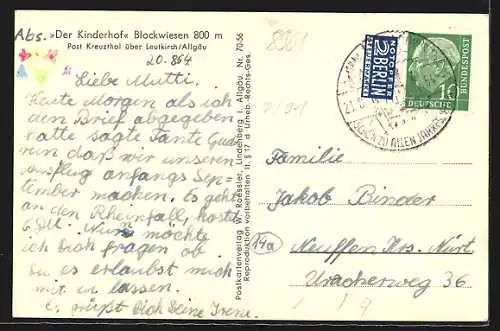 Abs. »Der Kinderhof« Blockwiesen 800 m
Post Kreuzthal über Leutkirch/Allgäu
20. 8 64
Liebe Mutti
Heute Morgen als ich
den Brief abgegeben
hatte sagte Tante Gud
run daß wir unseren
Ausflug anfangs Sep-
tember machen. Es geht
an den Rheinfall, kostet
6 DM. Nun möchte
ich Dich fragen ob
Du es erlaubst mich
mit zu lassen.
Es grüßt Dich Deine Irene.
Postkartenverlag W. Roessler, Lindenberg i. Allgäu. Nr. 70-56
Reproduktion vorbehalten lt. § 17 d. Urheb.-Rechts-Ges.
8961
NOTOPFER
2 BERLIN
STEUERMARKE
10
DEUTSCHE BUNDESPOST
Familie
Jakob Binder
14a
Neuffen Krs. Nürt
Uracherweg 36